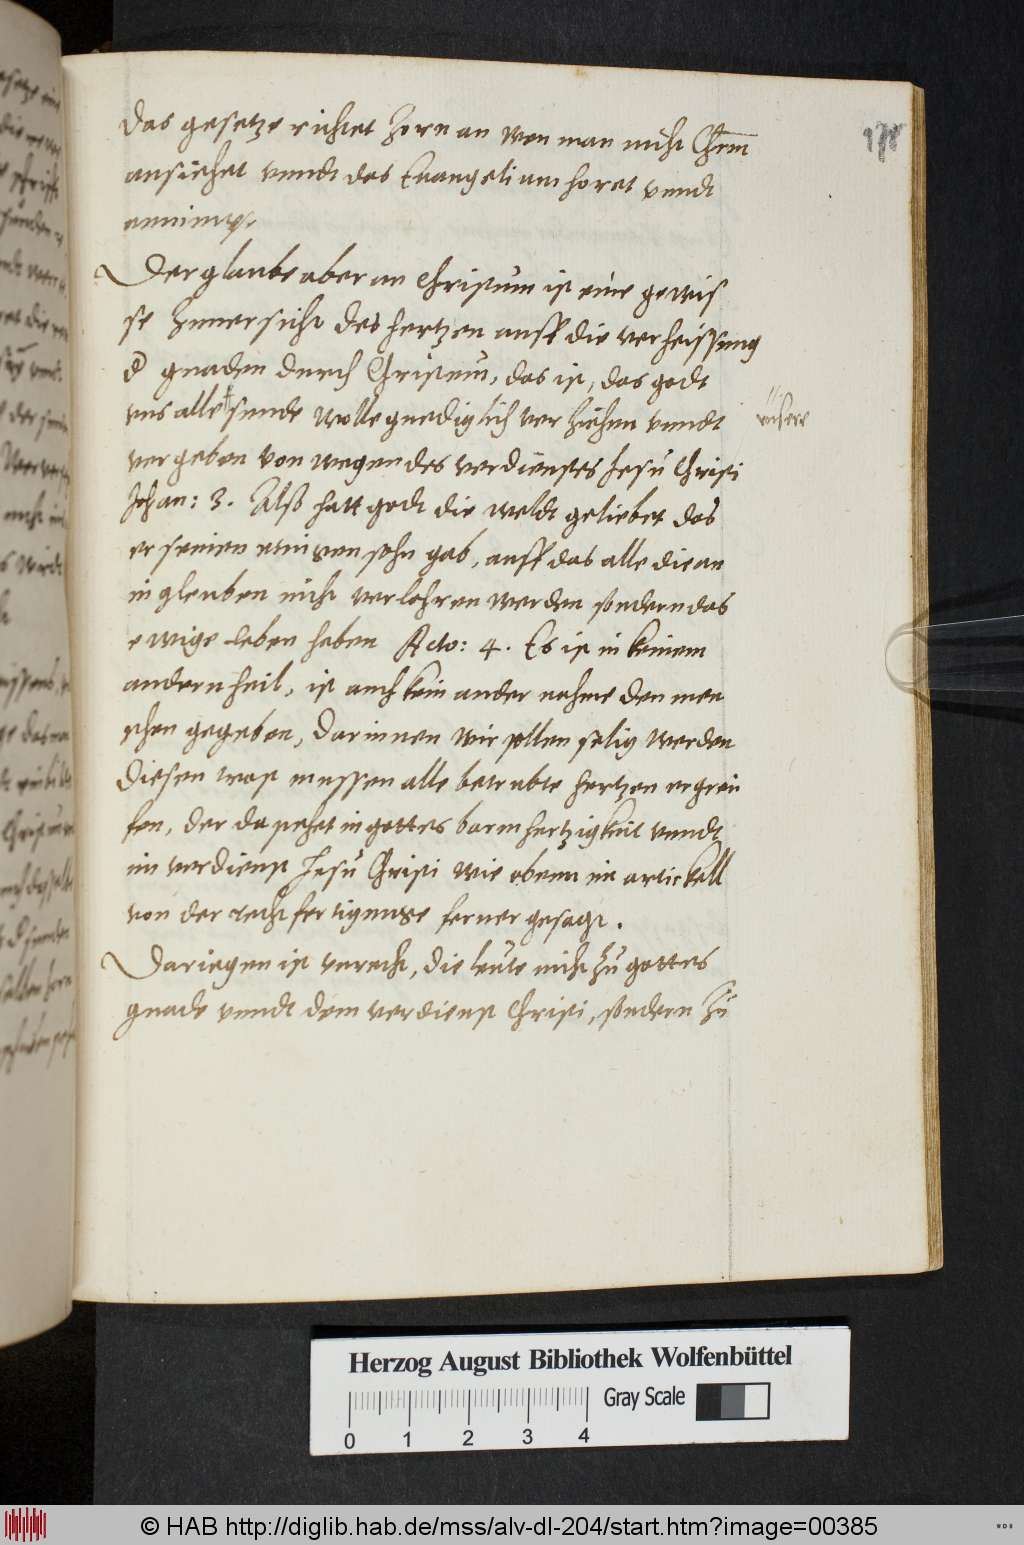 das gesetze richtet zorn an wen man nicht Chrm
ansiehet vnndt das Euangelium horet vnndt
annimpt.
Der glaube aber an Christum ist eine gewis
se Zuuersicht des hertzen auff die verheissung
d gnaden durch Christum, das ist, das godt
vns alle sunde wolle gnediglich verziehen vnndt
vnsere
vergeben von wegen des verdienstes Jesu Christi
Johan: 3. Also hatt godt die weldt geliebet das
er seinen einigen sohn gab, auff das alle die an
in gleuben nicht verlohren werden sondern das
ewige leben haben Acto: 4. Es ist in keinem
andern heil, ist auch kein ander nahme den men
schen gegeben, darinnen wir sollen selig werden
Diesen trost mussen alle betrubte hertzen ergrei
fen, der da stehet in gottes barmhertzigkeit vnndt
im verdienst Jesu Christi wie oben im artickell
von der rechtfertigunge ferner gesagt.
Dariegen ist vnrecht, die leute nicht zu gottes
gnade vnndt dem verdienst Christi, sondern zu
Herzog August Bibliothek Wolfenbüttel
Gray Scale
0 1 2 3 4
© HAB http://diglib.hab.de/mss/alv-dl-204/start.htm?image=00385